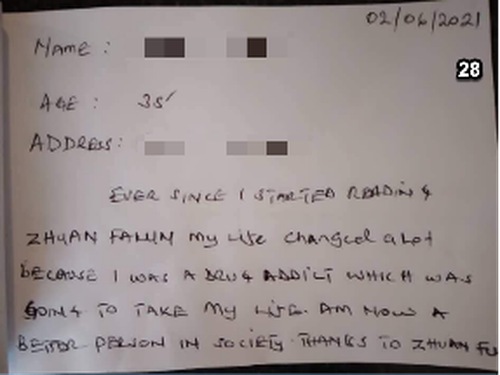 02/06/2021
28
NAME:
AGE: 35
ADDRESS:
EVER SINCE I STARTED READING
ZHUAN FALUN My Life changed a lot
BECAUSE I WAS A DRUG ADDICT WHICH WAS
GOING TO TAKE MY LIFE. AM NOW A
BETTER PERSON IN SOCIETY. THANKS TO ZHUAN FU